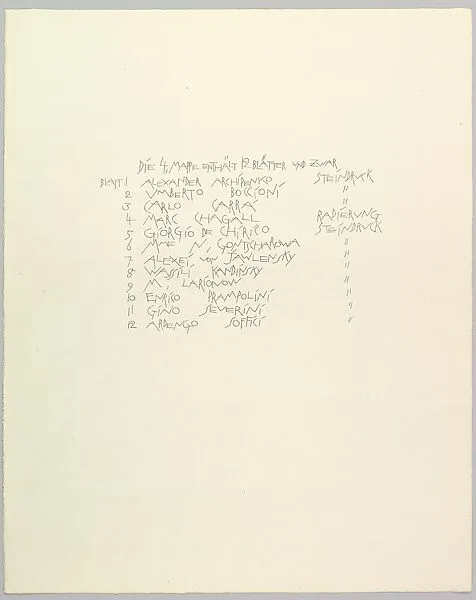 DIE 4. MAPPE ENTHÄLT 12 BLÄTTER UND ZWAR
BLATT 1 ALEXANDER ARCHIPENKO STEINDRUCK
2 UMBERTO BOCCIONI "
3 CARLO CARRÁ "
4 MARC CHAGALL RADIERUNG
5 GIORGIO DE CHIRICO STEINDRUCK
6 MME N. GONTSCHAROWA "
7 ALEXEI VON JAWLENSKY "
8 WASSILI KANDINSKY "
9 M. LARIONOW "
10 ENRICO PRAMPOLINI "
11 GINO SEVERINI "
12 ARDENGO SOFFICI "